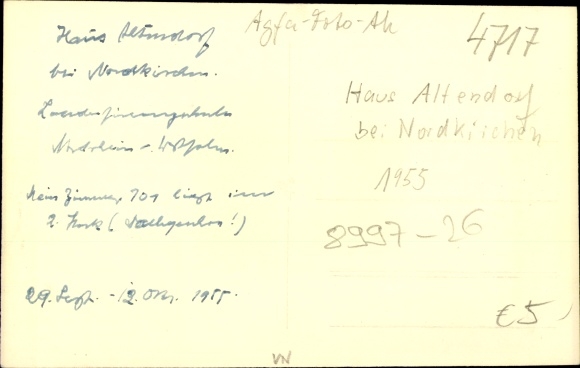 Haus Altendorf
bei Nordkirchen.
Landesfinanzschule
Nordrhein-Westfalen.
Mein Zimmer, 701 liegt im
2. Stock (Dachgeschoss!)
29. Sept. - 12. Okt. 1955.
Agfa-Foto-Ak
4717
Haus Altendorf
bei Nordkirchen
1955
8997-26
€5